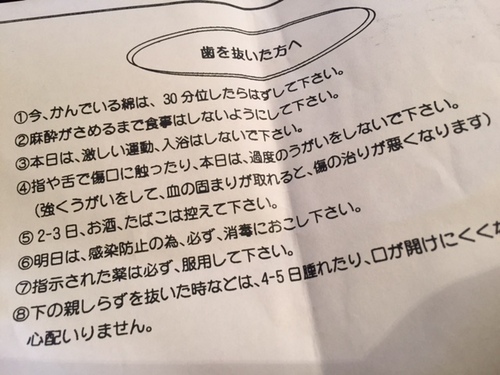 歯を抜いた方へ
①今、かんでいる綿は、30分位したらはずして下さい。
②麻酔がさめるまで食事はしないようにして下さい。
③本日は、激しい運動、入浴はしないで下さい。
④指や舌で傷口に触ったり、本日は、過度のうがいをしないで下さい。
(強くうがいをして、血の固まりが取れると、傷の治りが悪くなります)
⑤2-3日、お酒、たばこは控えて下さい。
⑥明日は、感染防止の為、必ず、消毒におこし下さい。
⑦指示された薬は必ず、服用して下さい。
⑧下の親しらずを抜いた時などは、4-5日腫れたり、口が開けにくく
心配いりません。